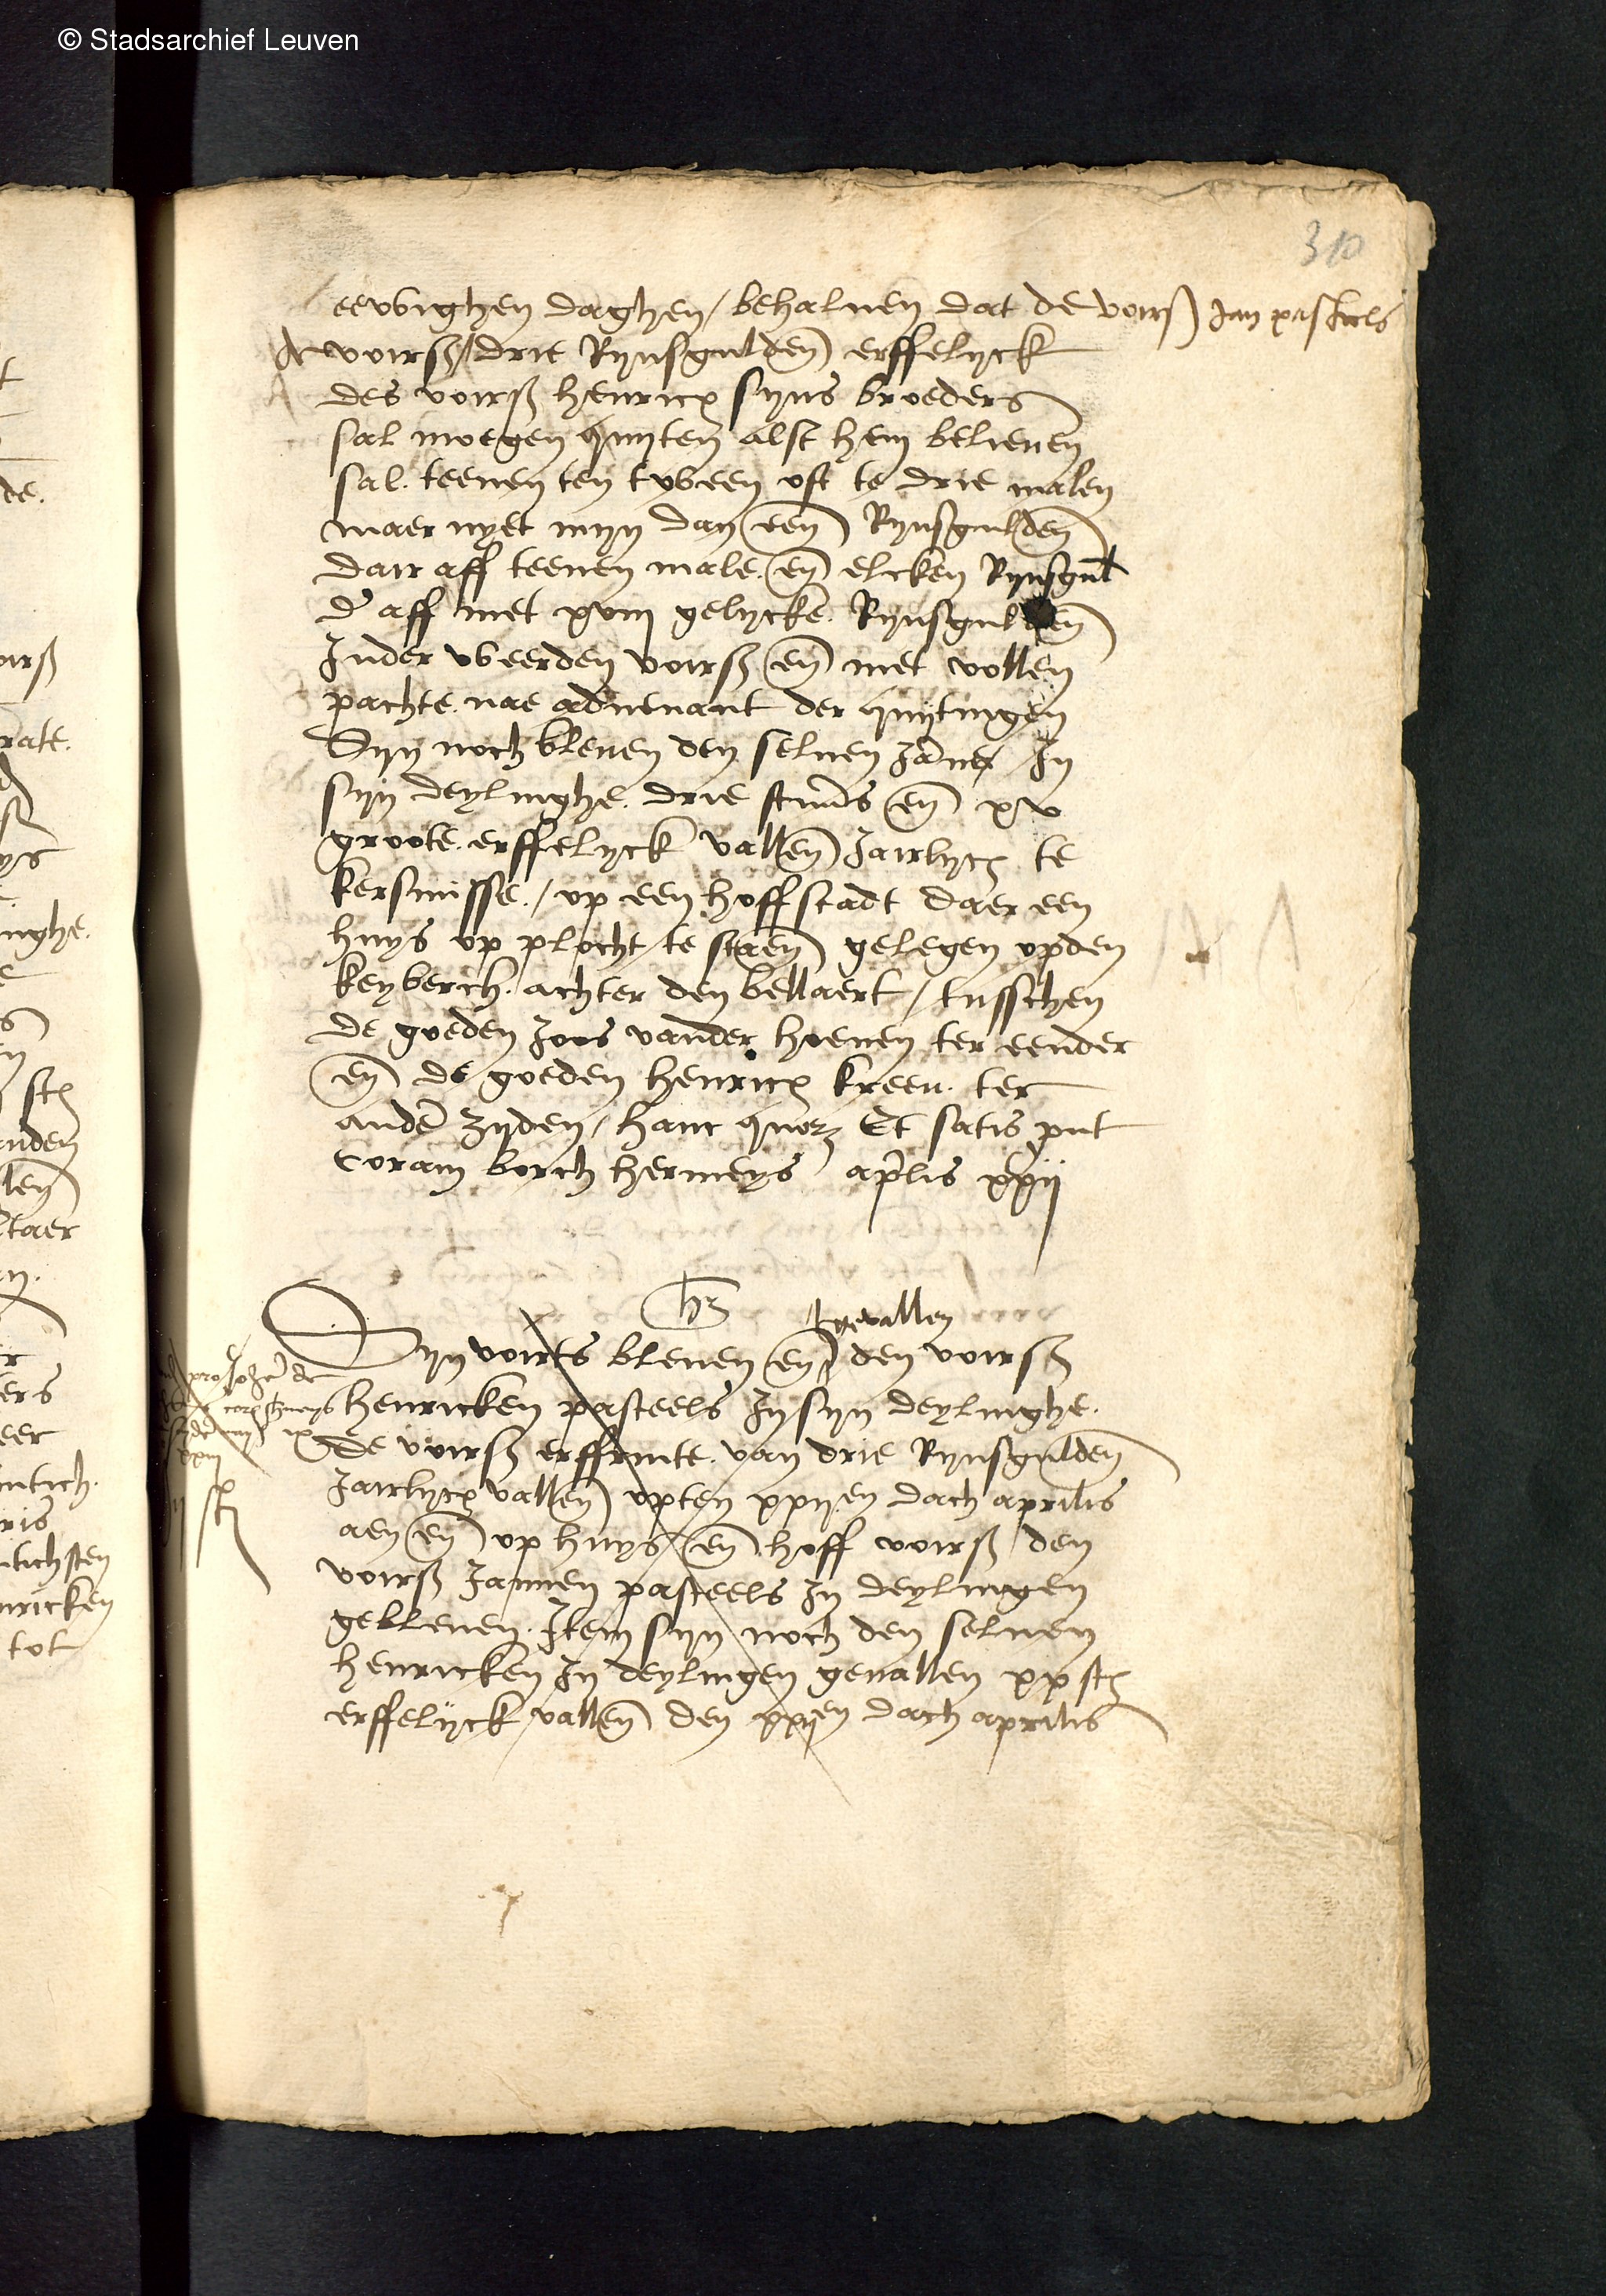 © Stadsarchief Leuven
310
eewighen daghen / behaluen dat de voirs Jan pasteels
de voirs / drie Rynsgulden erffelyck
des voirs henricx syns broeders
sal moegen quyten alst hem belieuen
sal. teenen ten tween oft te drie malen
maer nyet myn dan eenen Rynsgulden
dair aff teenen male. en elcken Rynsgul
d' aff met xviii gelycke. Rynsgulden
Inder weerden voirs en met vollen
pachte. nae aduenant der quytingen
Syn noch bleuen den seluen Janne In
syn deylinghe. drie stuuers en xv
groote. erffelyck vallen Jairlycx te
kersmisse. / op een hoffstadt daer een
huys op plocht te staen gelegen opden
keyberch. achter den bellaert / tusschen
de goeden Joos vander hoeuen ter eender
en de goeden henricx kreen. ter
ander zyden / hanc quoz Et satis put
Coram borch hermeys aplis xxii
hz
gevallen
Syn voirts bleuen en den voirs
henricken pasteels In syn deylinghe.
De voirs erffrinte. van drie Rynsgulden
Jairlycx vallen opten xxiien dach aprilis
aen en op huys en hoff voirs den
voirs Jannen pasteels In deylingen
gebleuen. Item syn noch den seluen
henricken In deylingen geuallen xx st
erffelyck vallen den xxiien dach aprilis